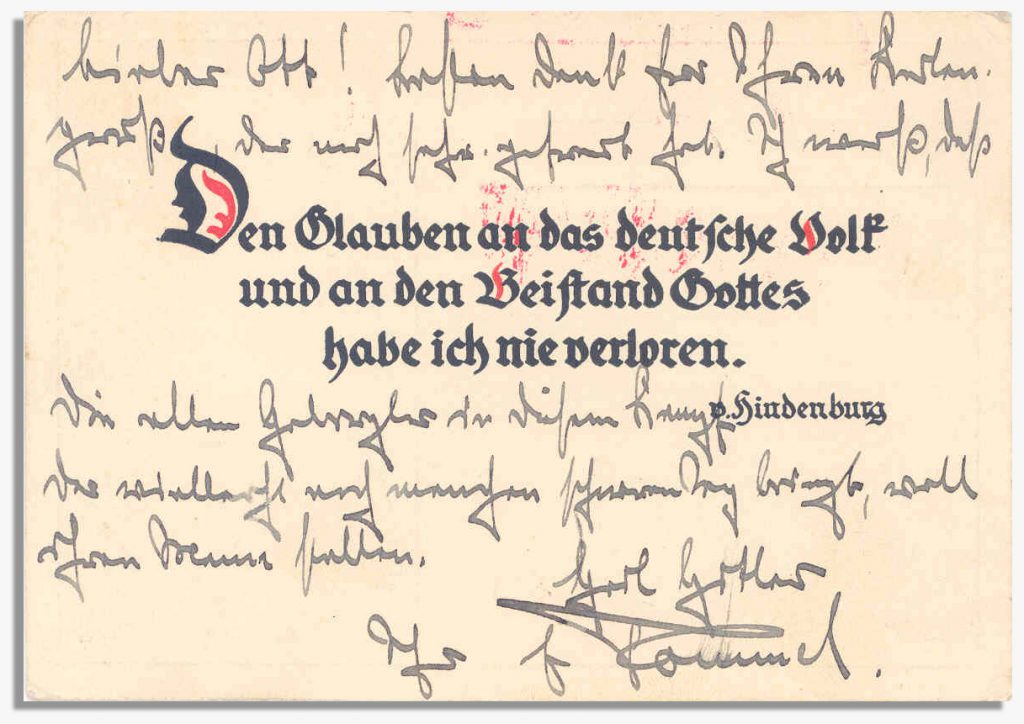 Lieber Ott! Besten Dank für Ihren Karten-
gruß, der mich sehr gefreut hat. Ich weiß, daß
Den Glauben an das deutsche Volk
und an den Beistand Gottes
habe ich nie verloren.
v. Hindenburg
Die alten in diesem Kampf
der vielleicht noch manchen schweren Tag bringt, voll
ihren Mann stellen.
Heil Hitler
Ihr E Rommel.